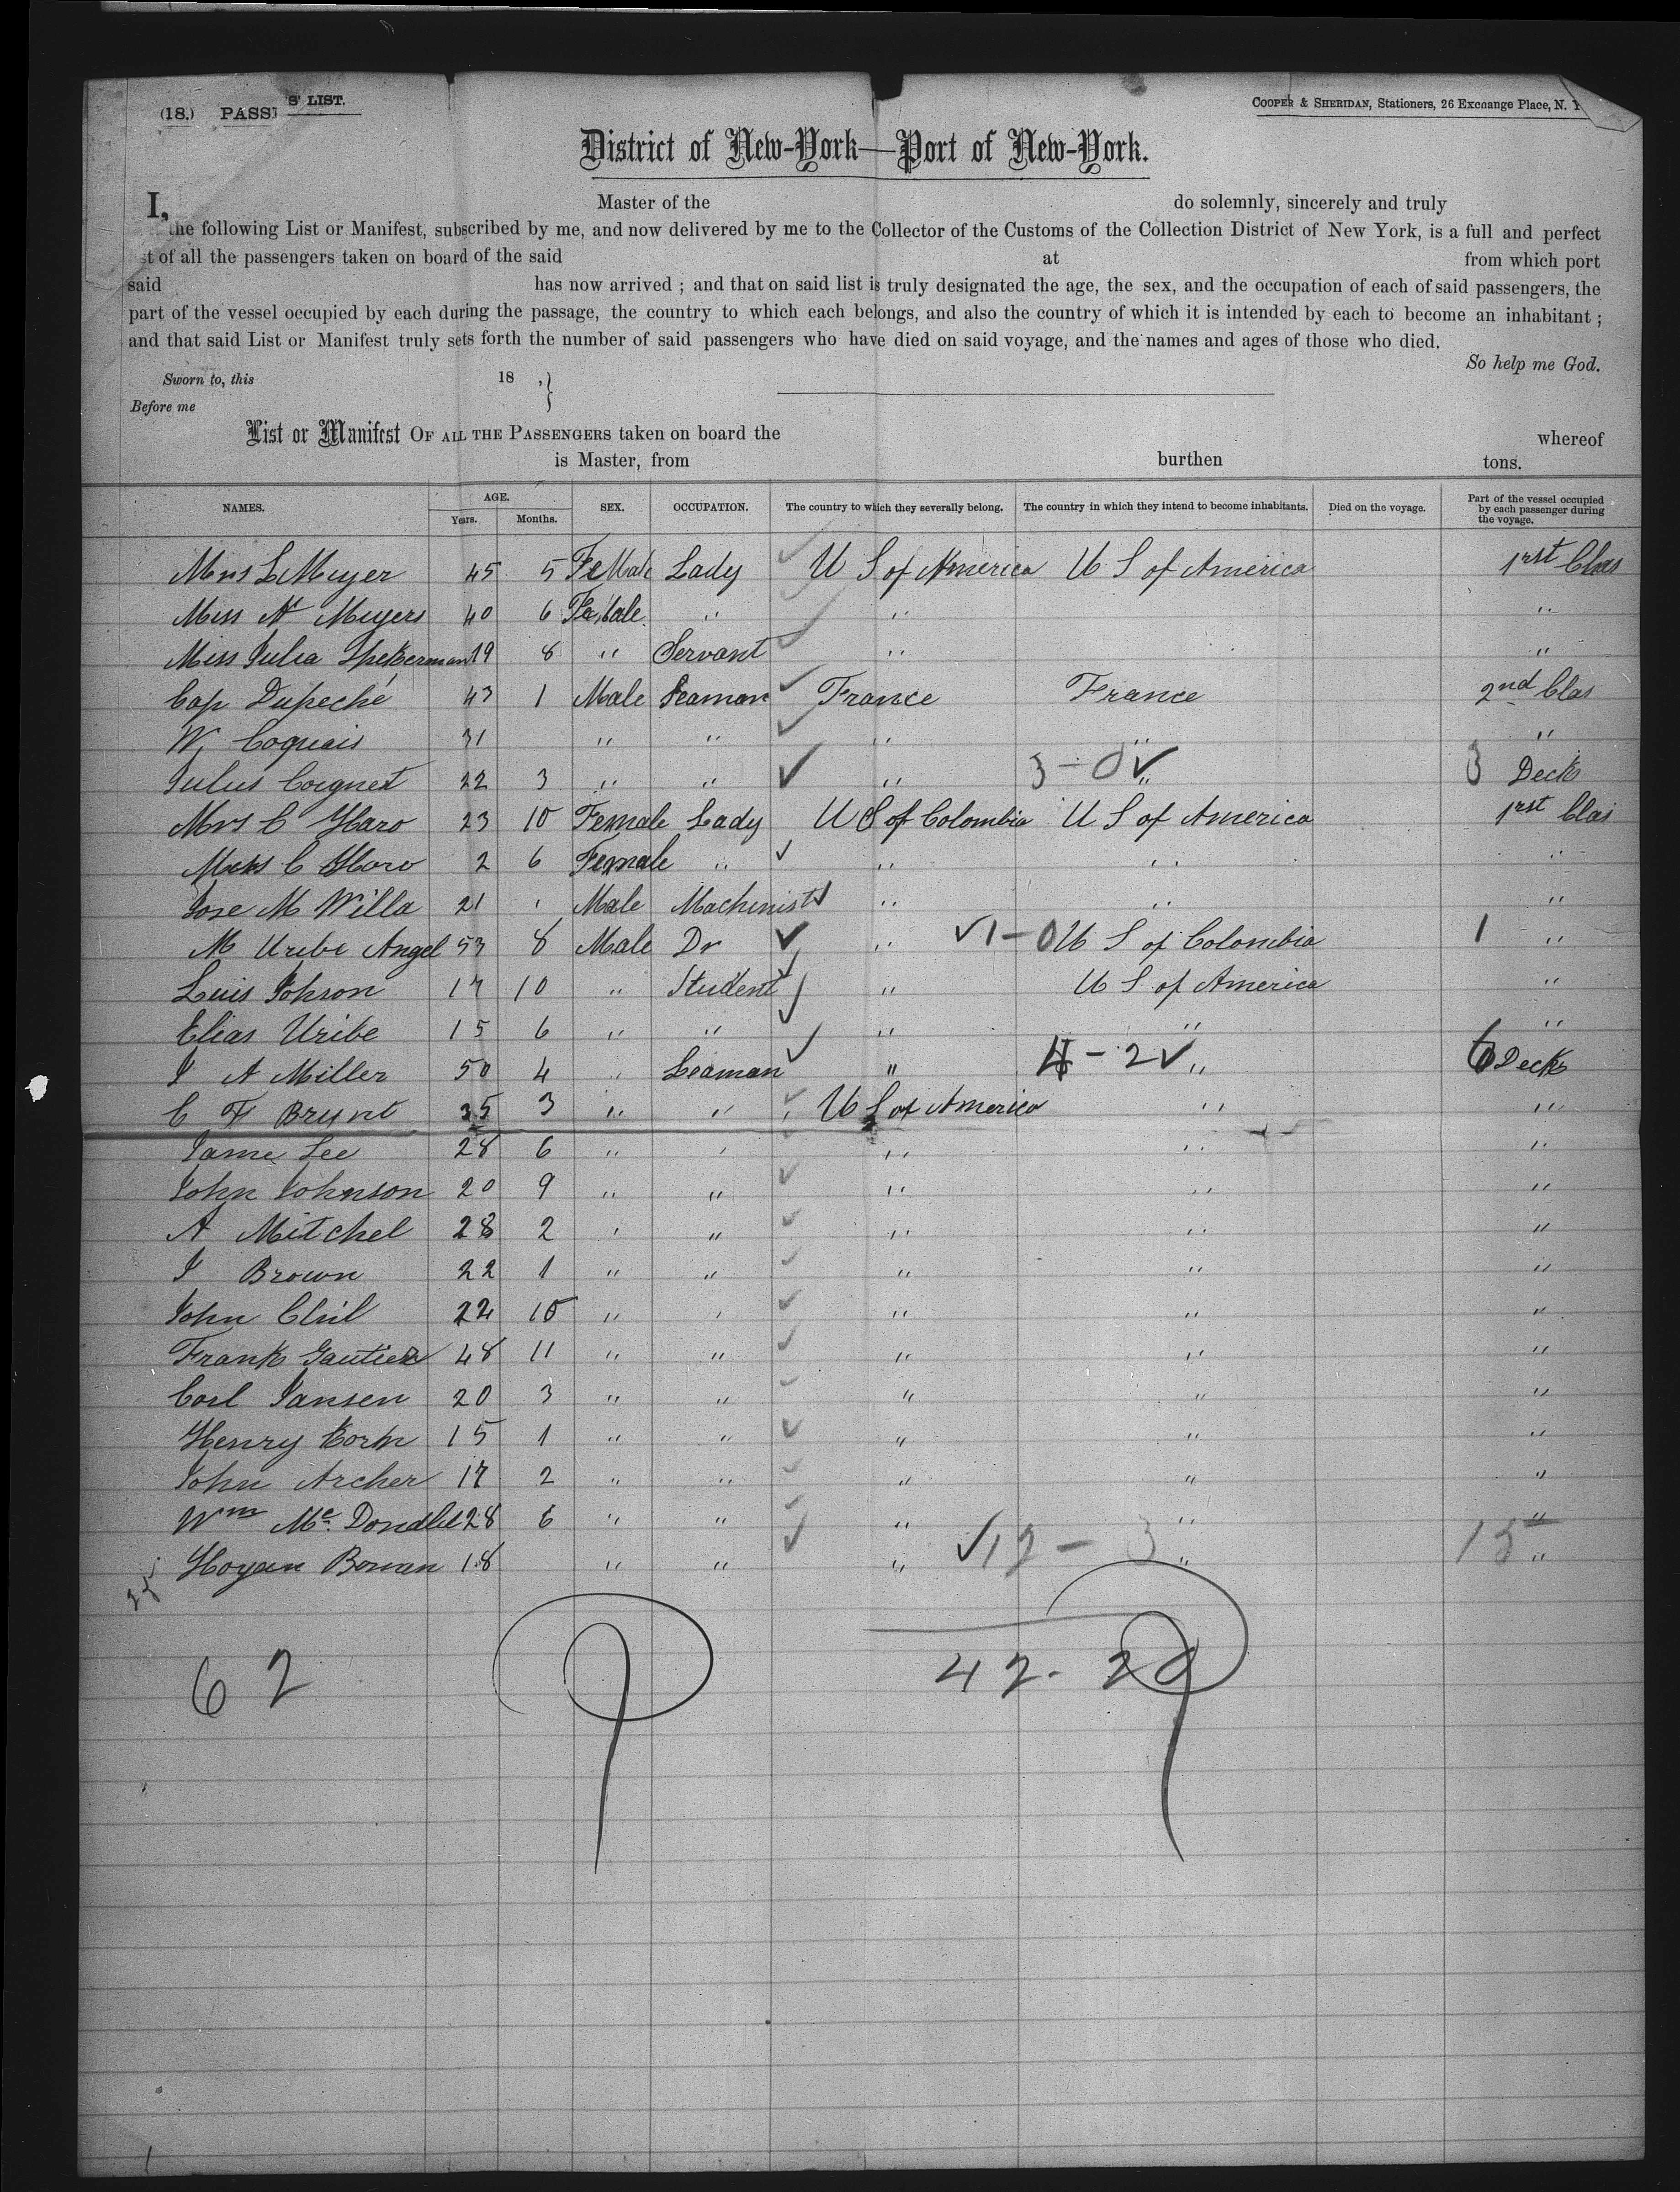 (18.) PASS S' LIST.
COOPER & SHERIDAN, Stationers, 26 Exchange Place, N. Y
District of New-York—Port of New-York.
I, Master of the do solemnly, sincerely and truly
the following List or Manifest, subscribed by me, and now delivered by me to the Collector of the Customs of the Collection District of New York, is a full and perfect
st of all the passengers taken on board of the said at from which port
said has now arrived ; and that on said list is truly designated the age, the sex, and the occupation of each of said passengers, the
part of the vessel occupied by each during the passage, the country to which each belongs, and also the country of which it is intended by each to become an inhabitant ;
and that said List or Manifest truly sets forth the number of said passengers who have died on said voyage, and the names and ages of those who died.
So help me God.
Sworn to, this 18 ,}
Before me
List or Manifest OF ALL THE PASSENGERS taken on board the whereof
is Master, from burthen tons.
NAMES. AGE. Years. Months. SEX. OCCUPATION. The country to which they severally belong. The country in which they intend to become inhabitants. Died on the voyage. Part of the vessel occupied by each passenger during the voyage.
Mrs L Meyer 45 5 FeMale Lady U S of America U S of America 1rst Clas
Miss A Meyers 40 6 Female " " "
Miss Julia Spekerman 19 8 " Servant " "
Cap Dupeché 43 1 Male Seaman France France 2nd Clas
W, Coquais 31 " " " " "
Julus Coignet 22 3 " " " 3-0 " 3 Deck
Mrs C Haro 23 10 Female Lady U S of Colombia U S of America 1rst Clas
Miss C Haro 2 6 Female " " " "
Jose M Willa 21 " Male Machinist " " "
M Uribe Angel 53 8 Male Dr " 1-0 U S of Colombia 1 "
Luis Johson 17 10 " Student " U S of America "
Elias Uribe 15 6 " " " " "
J A Miller 50 4 " Seaman " 4-2 " 6 Deck
C F Brynt 35 3 " " U S of America " "
Jame Lee 28 6 " " " " "
John Johnson 20 9 " " " " "
A Mitchel 28 2 " " " " "
J Brown 22 1 " " " " "
John Clril 22 10 " " " " "
Frank Gautier 48 11 " " " " "
Carl Jansen 20 3 " " " " "
Henry Korn 15 1 " " " " "
John Archer 17 2 " " " " "
Wm Mc. Dondlel 28 6 " " " " "
Hoyan Bowan 18 " " " 12-3 " 15 "
25
62 42-20